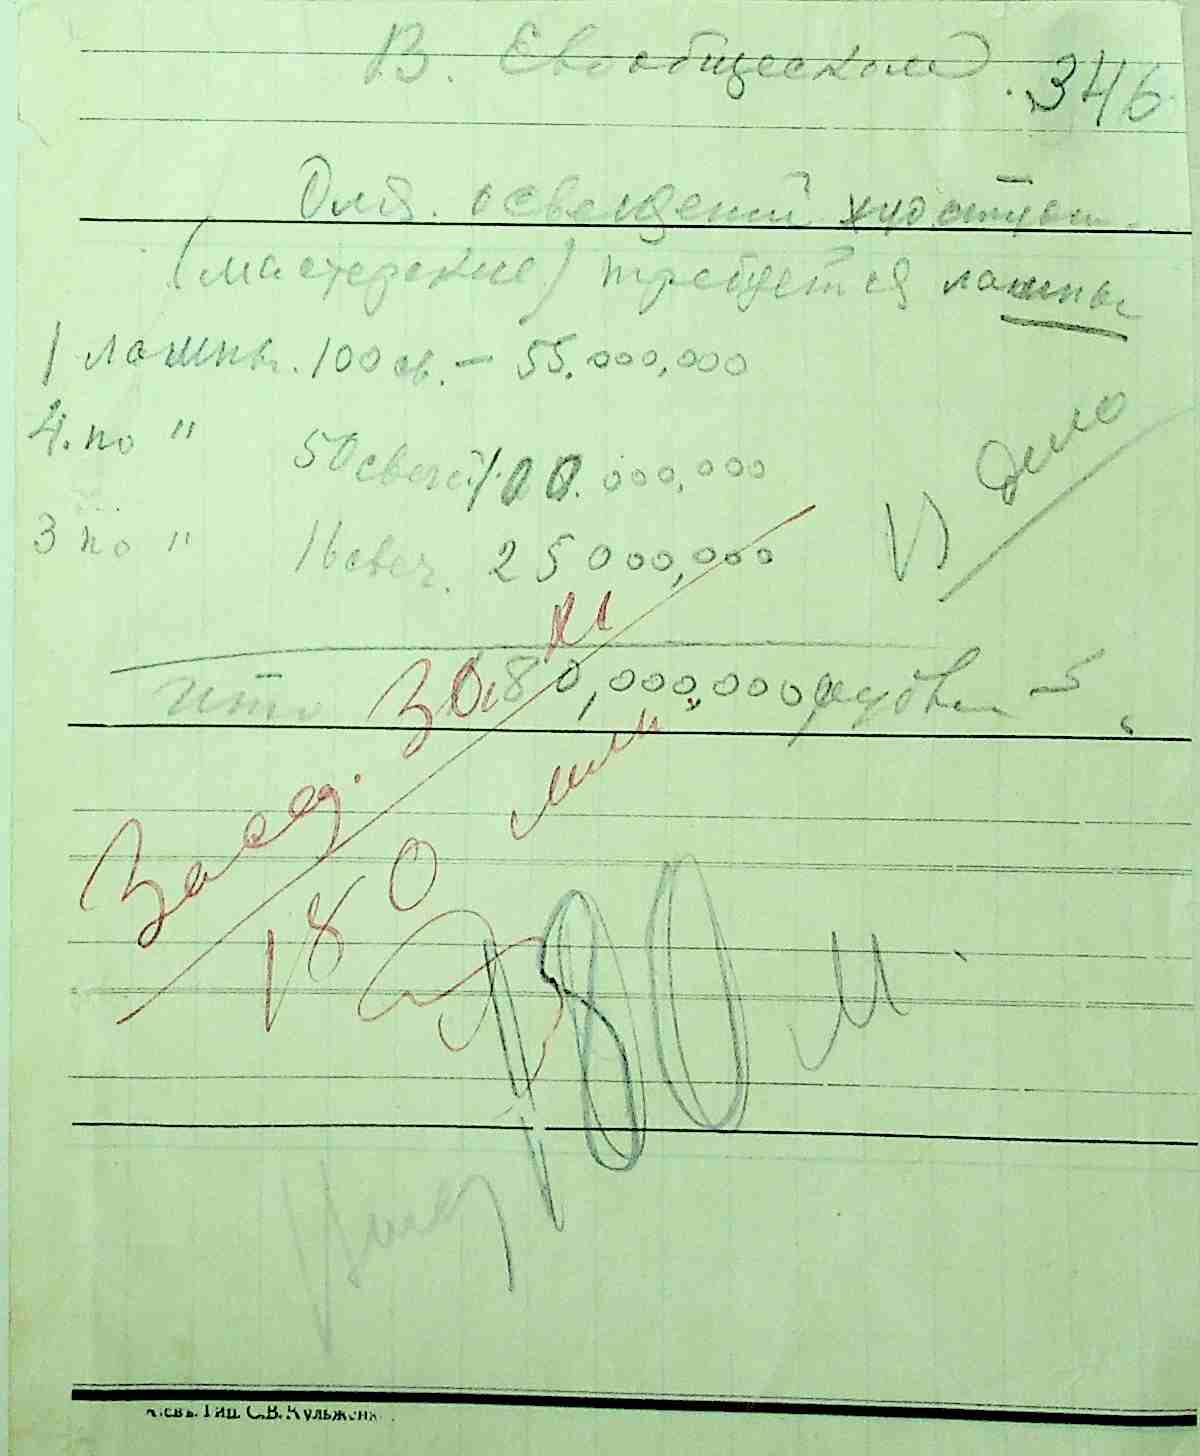 В. Евообщеском
346
Для освещений худ студии
(мастерские) требуется лампы
1 лампы. 100 св. — 55.000,000
4. по " 50 свечей 100.000,000
3 по " 16 свеч. 25 000,000
В дело
Ито 180,000,000 рублей
Засед. 30/XI
180 мил.
180 м
Кіевъ. Тип. С.В. Кульженк